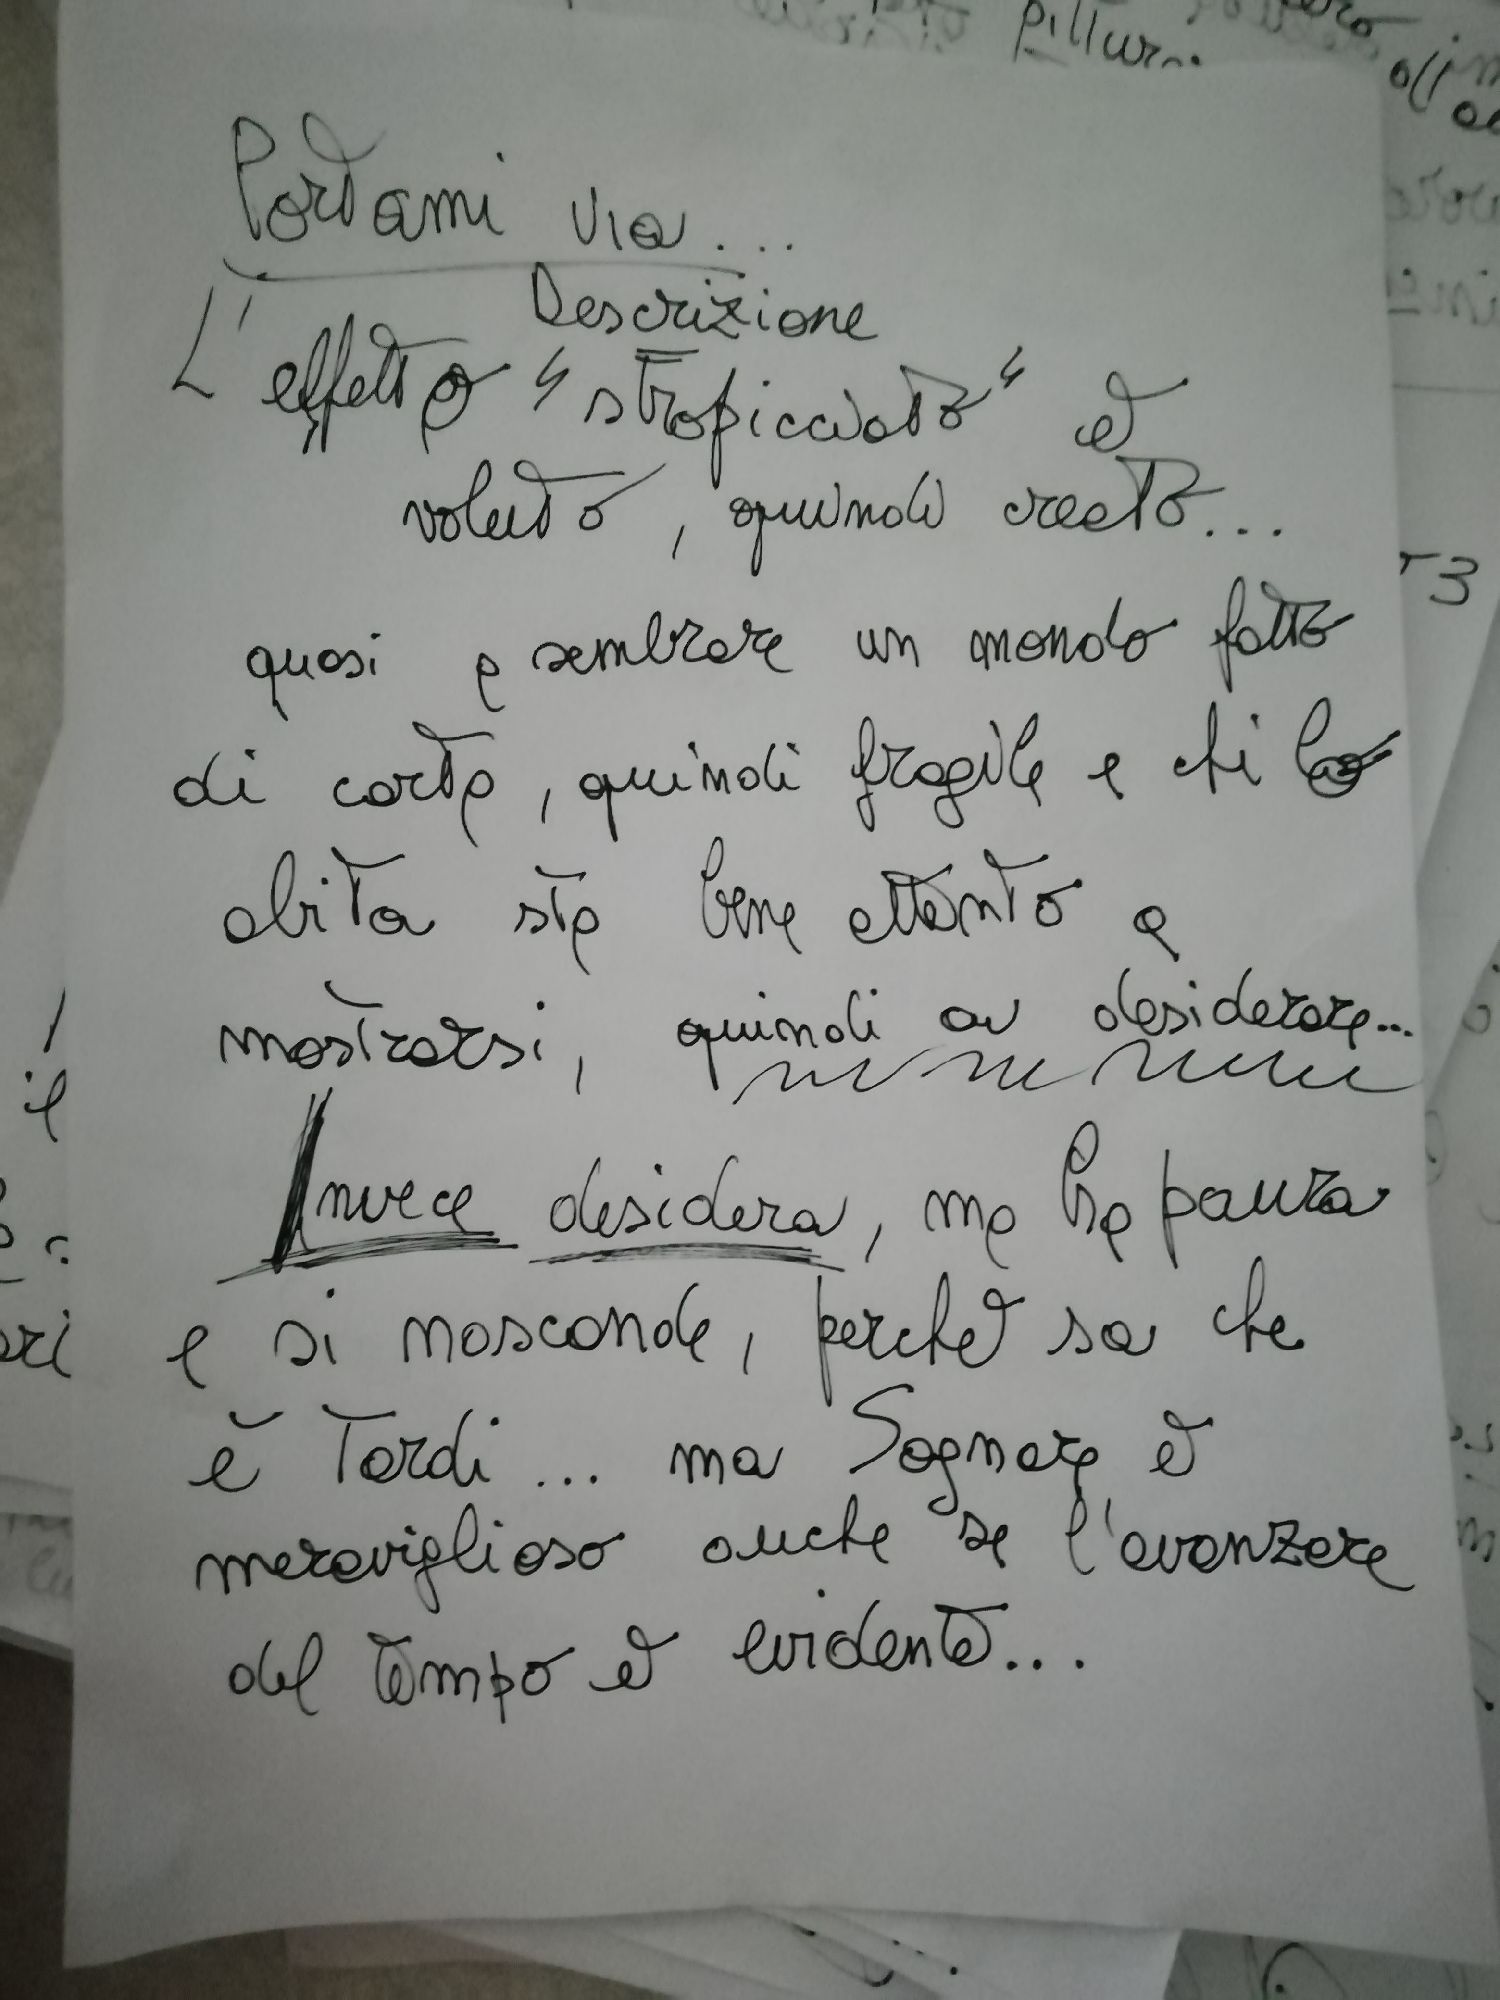 Pittur
Portami via...
Descrizione
L'effetto "stropicciato" è
voluto, quindi creato...
quasi a sembrare un mondo fatto
di carta, quindi fragile e chi lo
abita sta bene attento a
mostrarsi, quindi a desiderare...
Invece desidera, ma ha paura
e si nasconde, perchè sa che
è tardi... ma Sognare è
meraviglioso anche se l'avanzare
del tempo è evidente...
il